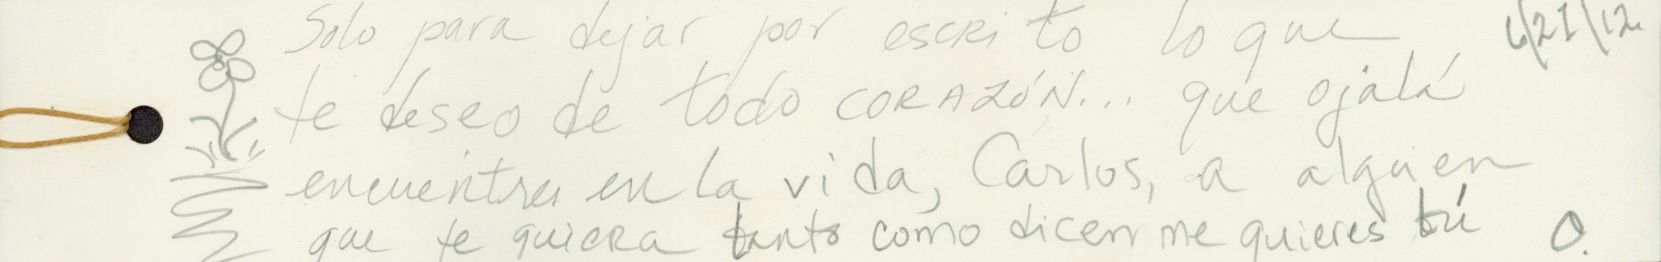 Solo para dejar por escrito lo que 6/21/12.
te deseo de todo CORAZÓN... que ojalá
encuentres en la vida, Carlos, a alguien
que te quiera tanto como dicen me quieres tú O.